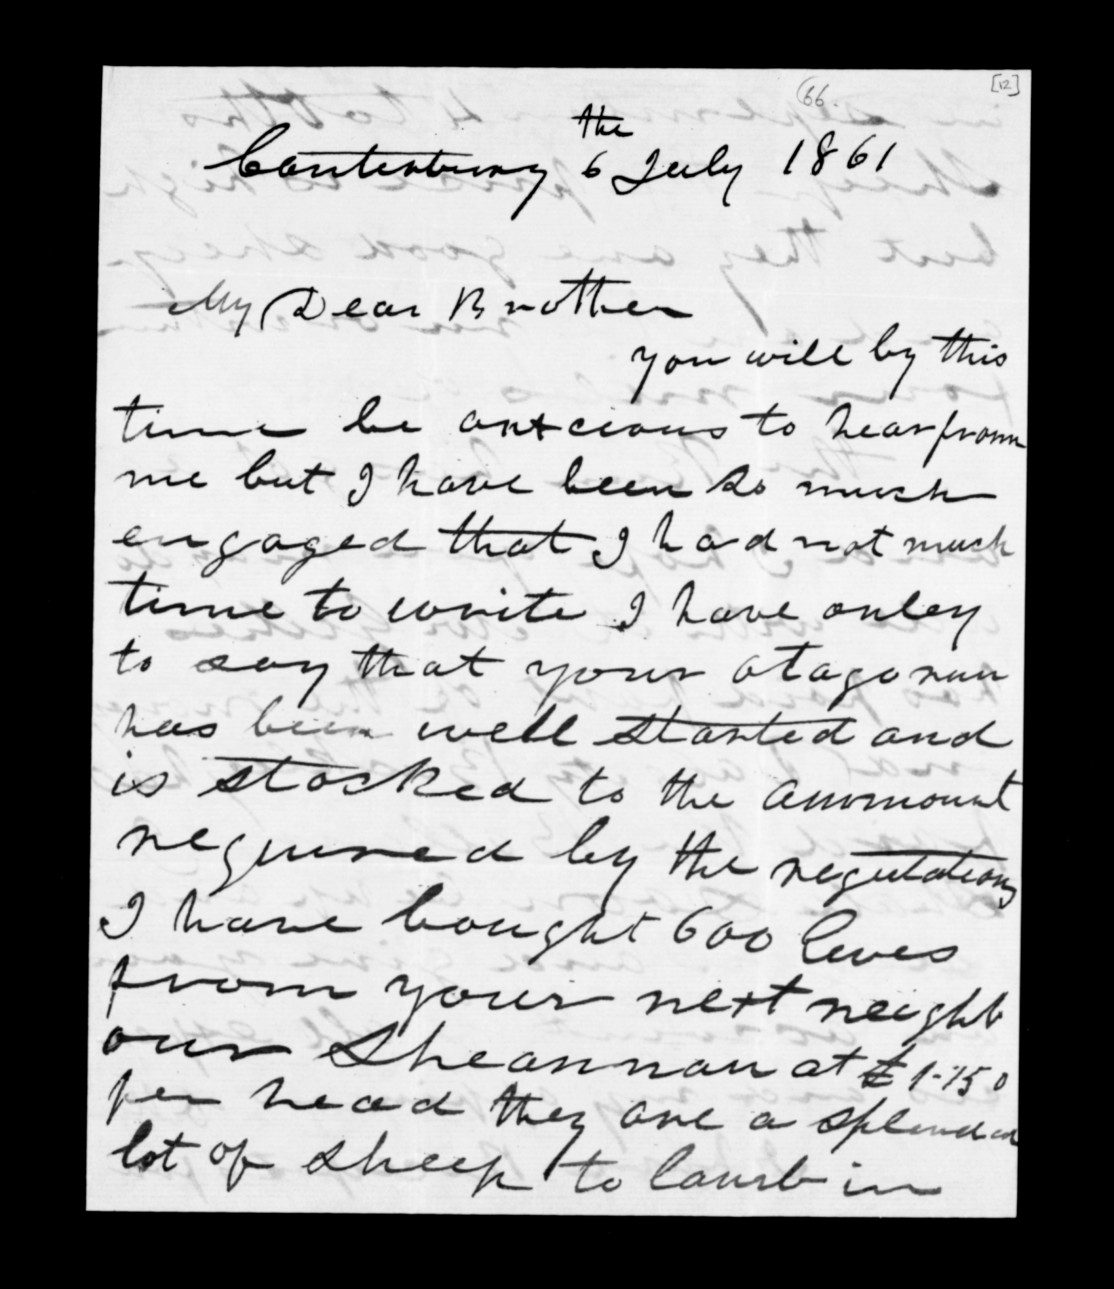 [12]
66.
Canterbury 6 the July 1861
My Dear Brother
you will by this
time be anxcious to hear from
me but I have been so much
engaged that I had not much
time to write I have onley
to say that your otago run
has been well started and
is stocked to the ammount
required by the regulations
I have bought 600 Ewes
from your next neighb
our Shearman at £1-15 0
per head they are a splended
lot of sheep to lamb in